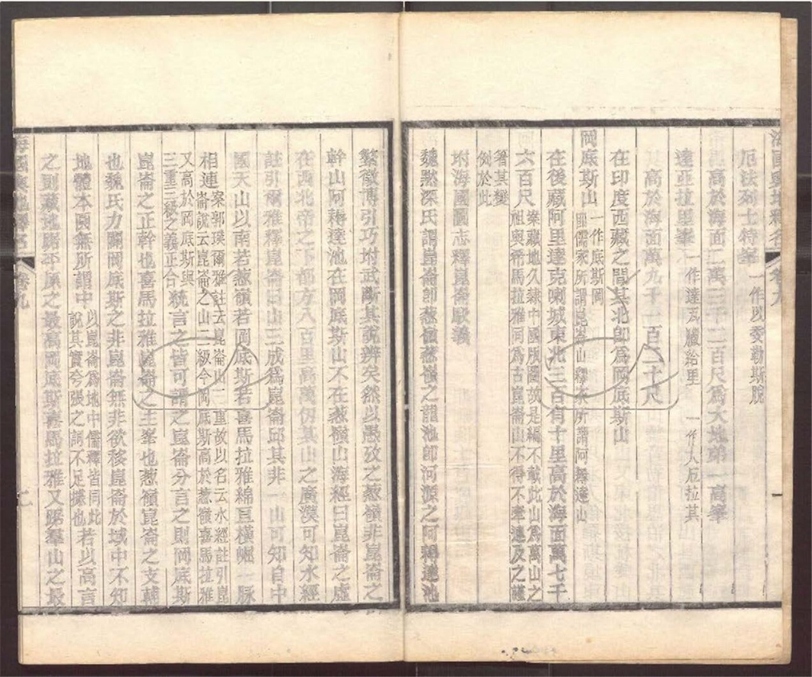 海國輿地釋名 卷九
厄法列士特峯 一作以委勒斯脫
高於海面二萬三千二百尺爲大地第一高峯
達亞拉里峯 一作達瓦臘給里 一作大厄拉其
其高於海面萬九千一百六十尺
在印度西藏之間其北卽爲岡底斯山
岡底斯山 一作底斯岡 卽儒家所謂崑崙山釋氏所謂阿耨達山
在後藏阿里達克喇城東北三百有十里高於海面萬七千
六百尺 案藏地久隸中國版圖故是編不載此山爲萬山之祖與希馬拉雅同爲古崑崙山不得不牽連及之謹
著其槪例於此
坿海國圖志釋崑崙駁義
魏黙深氏謂崑崙卽葱嶺葱嶺之龍池卽河源之阿耨達池
繁徵博引巧坿武斷其說辨矣然以愚攷之葱嶺非崑崙之
幹山阿耨達池在岡底斯山不在葱嶺山海經曰崑崙之虛
在西北帝之下都方八百里高萬仞其山之廣漠可知水經
註引爾雅釋崑崙曰山三成爲崑崙邱其非一山可知自中
國天山以南若葱嶺若岡底斯若喜馬拉雅綿亘橫崛一脈
相連 案郭璞爾雅註云崑崙山三重故以名云水經註引崑崙說云崑崙之山三級今岡底斯高於葱嶺喜馬拉雅
又高於岡底斯與三重三級之義正合 統言之皆可謂之崑崙分言之則岡底斯
崑崙之正幹也喜馬拉雅崑崙之主峯也葱嶺崑崙之支輔
也魏氏力闢岡底斯之非崑崙無非欲移崑崙於域中不知
地體本圓無所謂中 以崑崙爲地中儒釋皆同此說其實夸張之詞不足據也 若以高言
之則藏地踞平原之最高岡底斯喜馬拉雅又踞羣山之最
海國輿地釋名 卷九